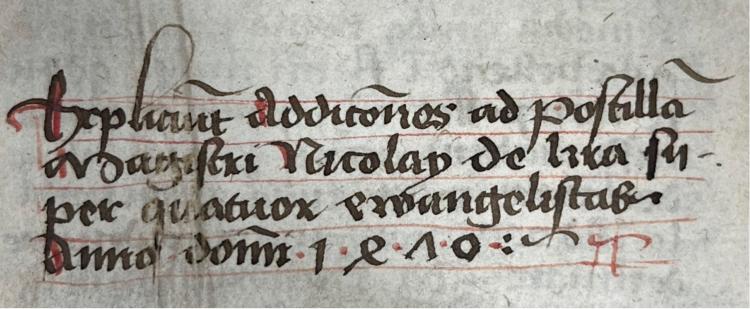 Expliciūt Addicōnes ad Postillā
Magistri Nicolay de lira su-
per quatuor ewangelistas
Anno domī · 1 · 4 · 7 · 0 :